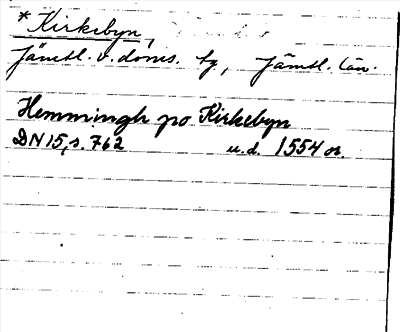 *Kirkebyn,
Jämtl. v. doms. tg, Jämtl. län.
Hemmingh po Kirkebyn
DN 15, s. 762 u.d. 1554 or.